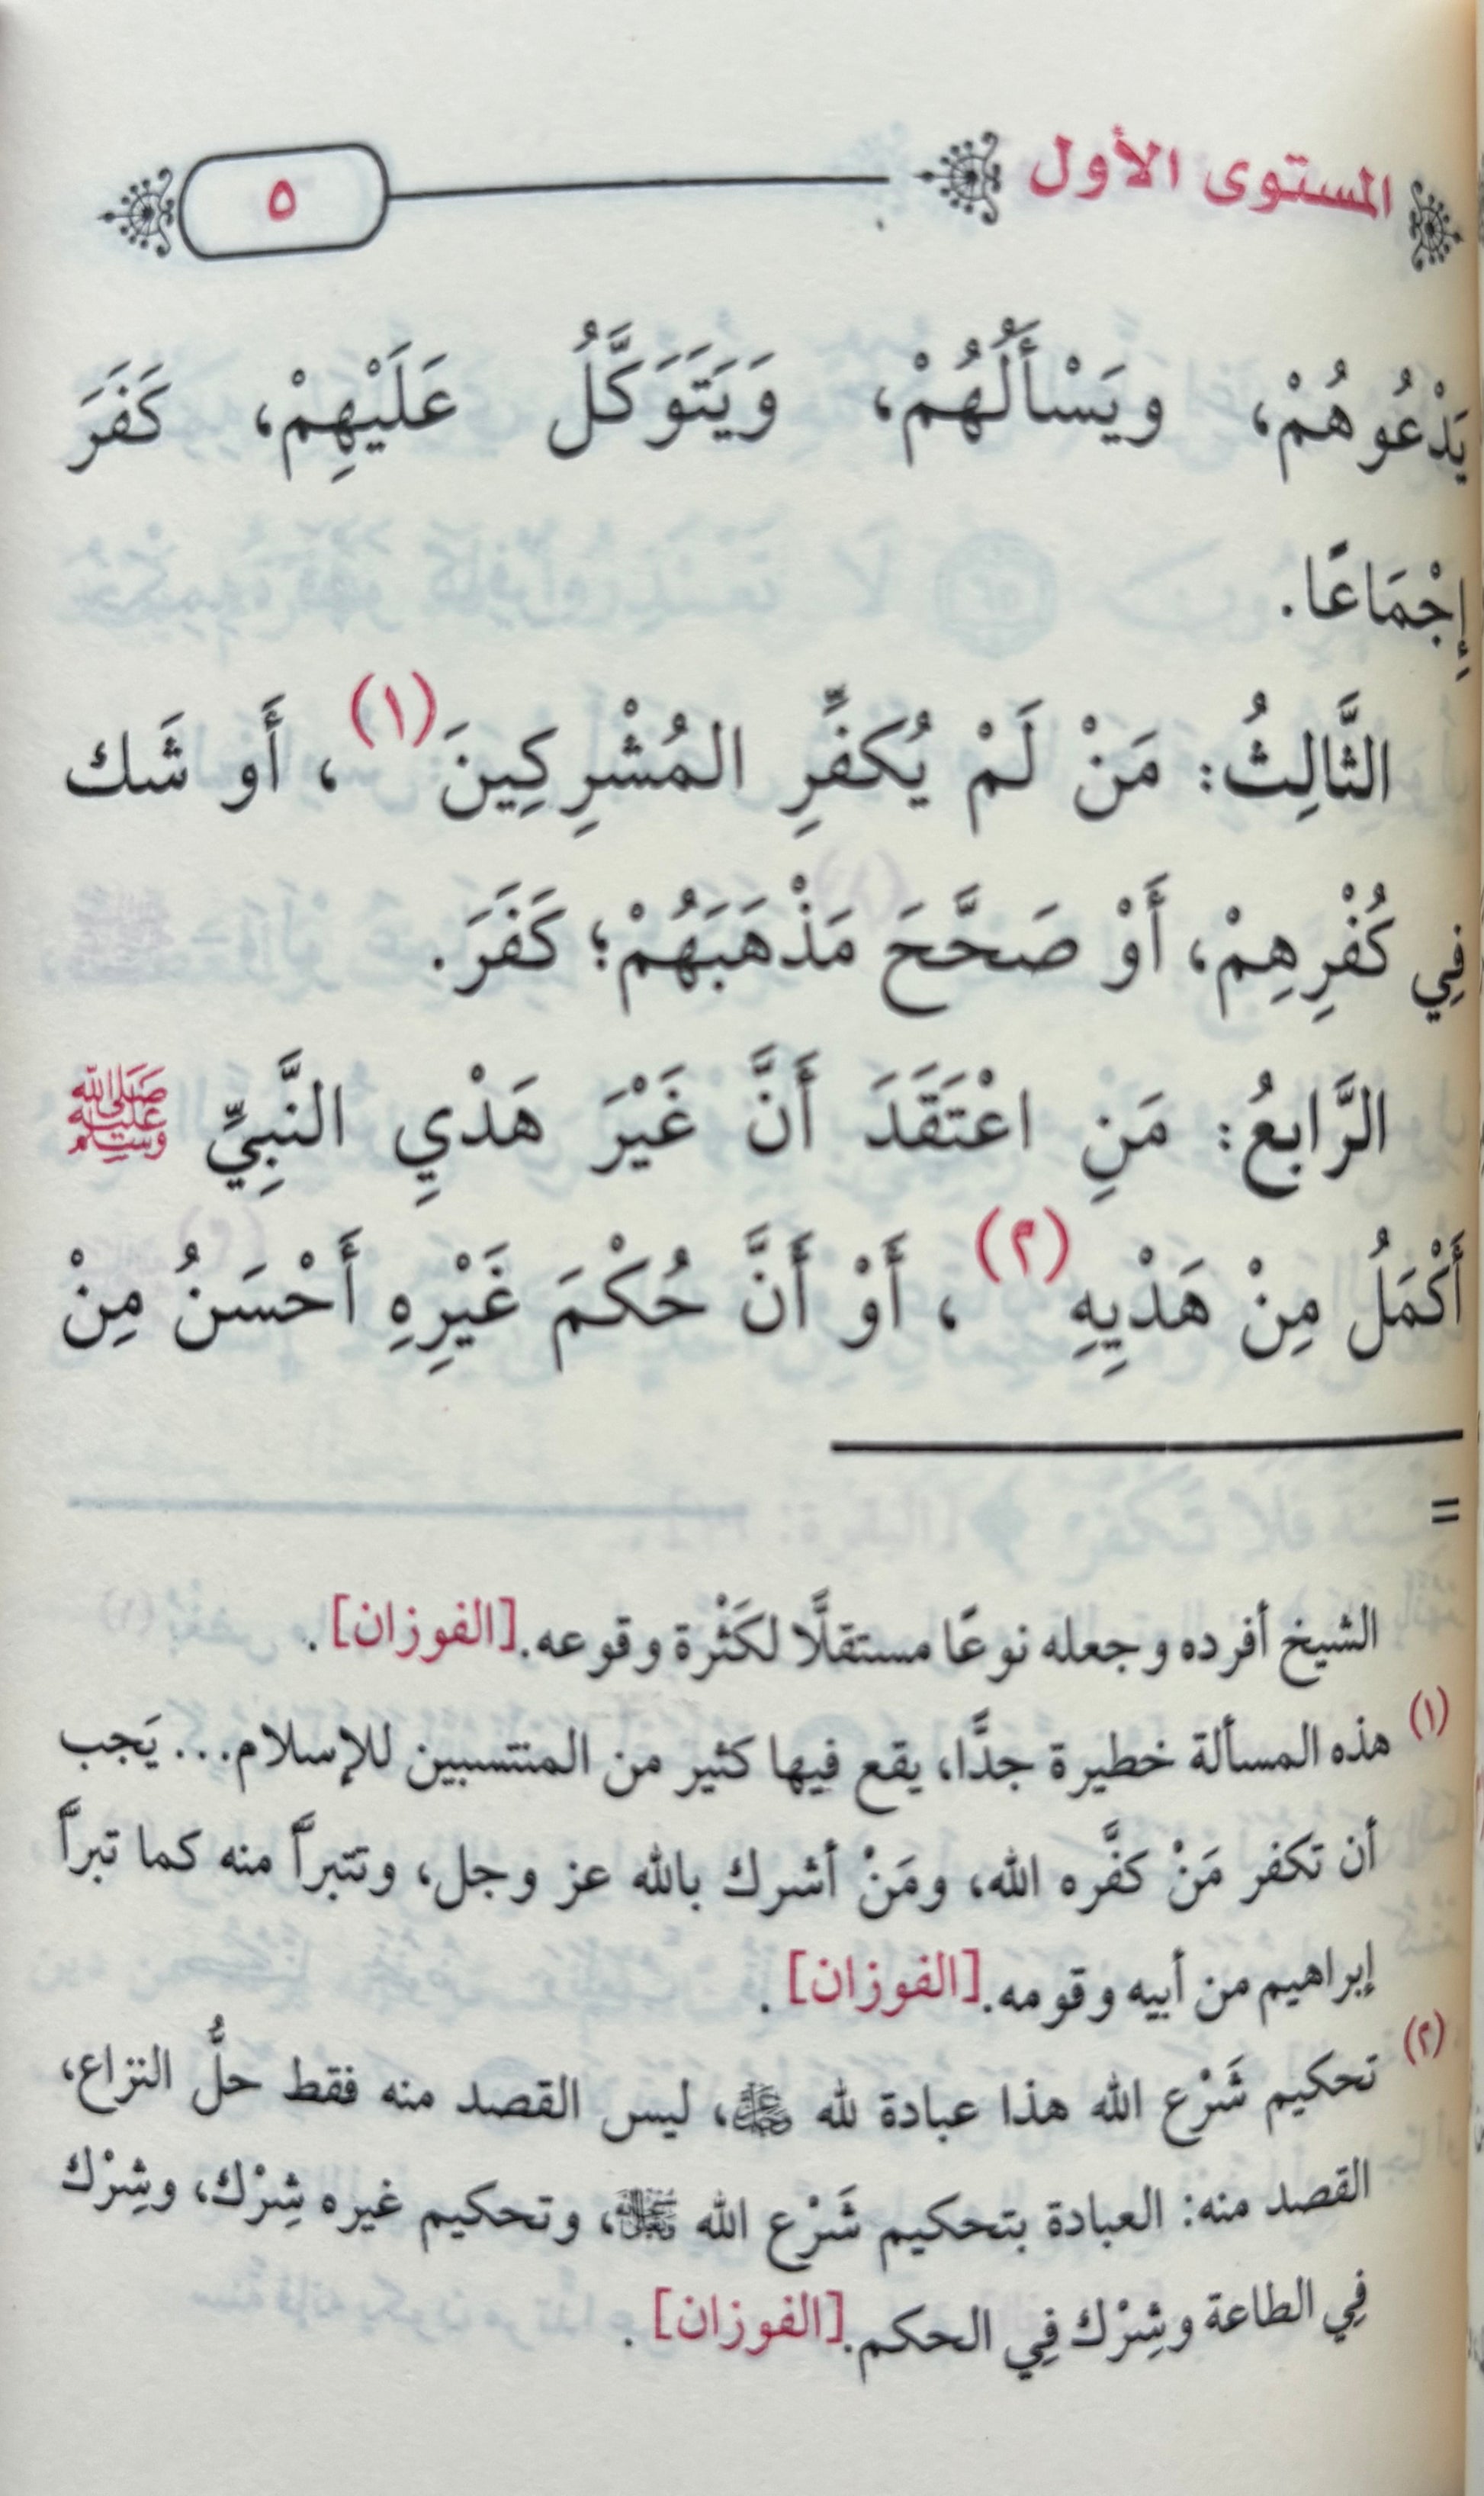 المستوى الأول
٥
يَدْعُوهُمْ، ويَسْأَلُهُمْ، وَيَتَوَكَّلُ عَلَيْهِمْ، كَفَرَ
إِجْمَاعًا.
الثَّالِثُ: مَنْ لَمْ يُكفِّرِ المُشْرِكِينَ(١)، أَو شَك
فِي كُفْرِهِمْ، أَوْ صَحَّحَ مَذْهَبَهُمْ؛ كَفَرَ.
الرَّابِعُ: مَنِ اعْتَقَدَ أَنَّ غَيْرَ هَدْيِ النَّبِيِّ ﷺ
أَكْمَلُ مِنْ هَدْيِهِ(٢)، أَوْ أَنَّ حُكْمَ غَيْرِهِ أَحْسَنُ مِنْ
=
الشيخ أفرده وجعله نوعًا مستقلًّا لكَثْرة وقوعه.[الفوزان].
(١) هذه المسألة خطيرة جدًّا، يقع فيها كثير من المنتسبين للإسلام... يَجب
أن تكفر مَنْ كفَّره الله، ومَنْ أشرك بالله عز وجل، وتتبرأَّ منه كما تبرأَّ
إبراهيم من أبيه وقومه.[الفوزان].
(٢) تحكيم شَرْع الله هذا عبادة لله ﷿، ليس القصد منه فقط حلُّ النزاع،
القصد منه: العبادة بتحكيم شَرْع الله، وتحكيم غيره شِرْك، وشِرْك
فِي الطاعة وشِرْك فِي الحكم.[الفوزان].